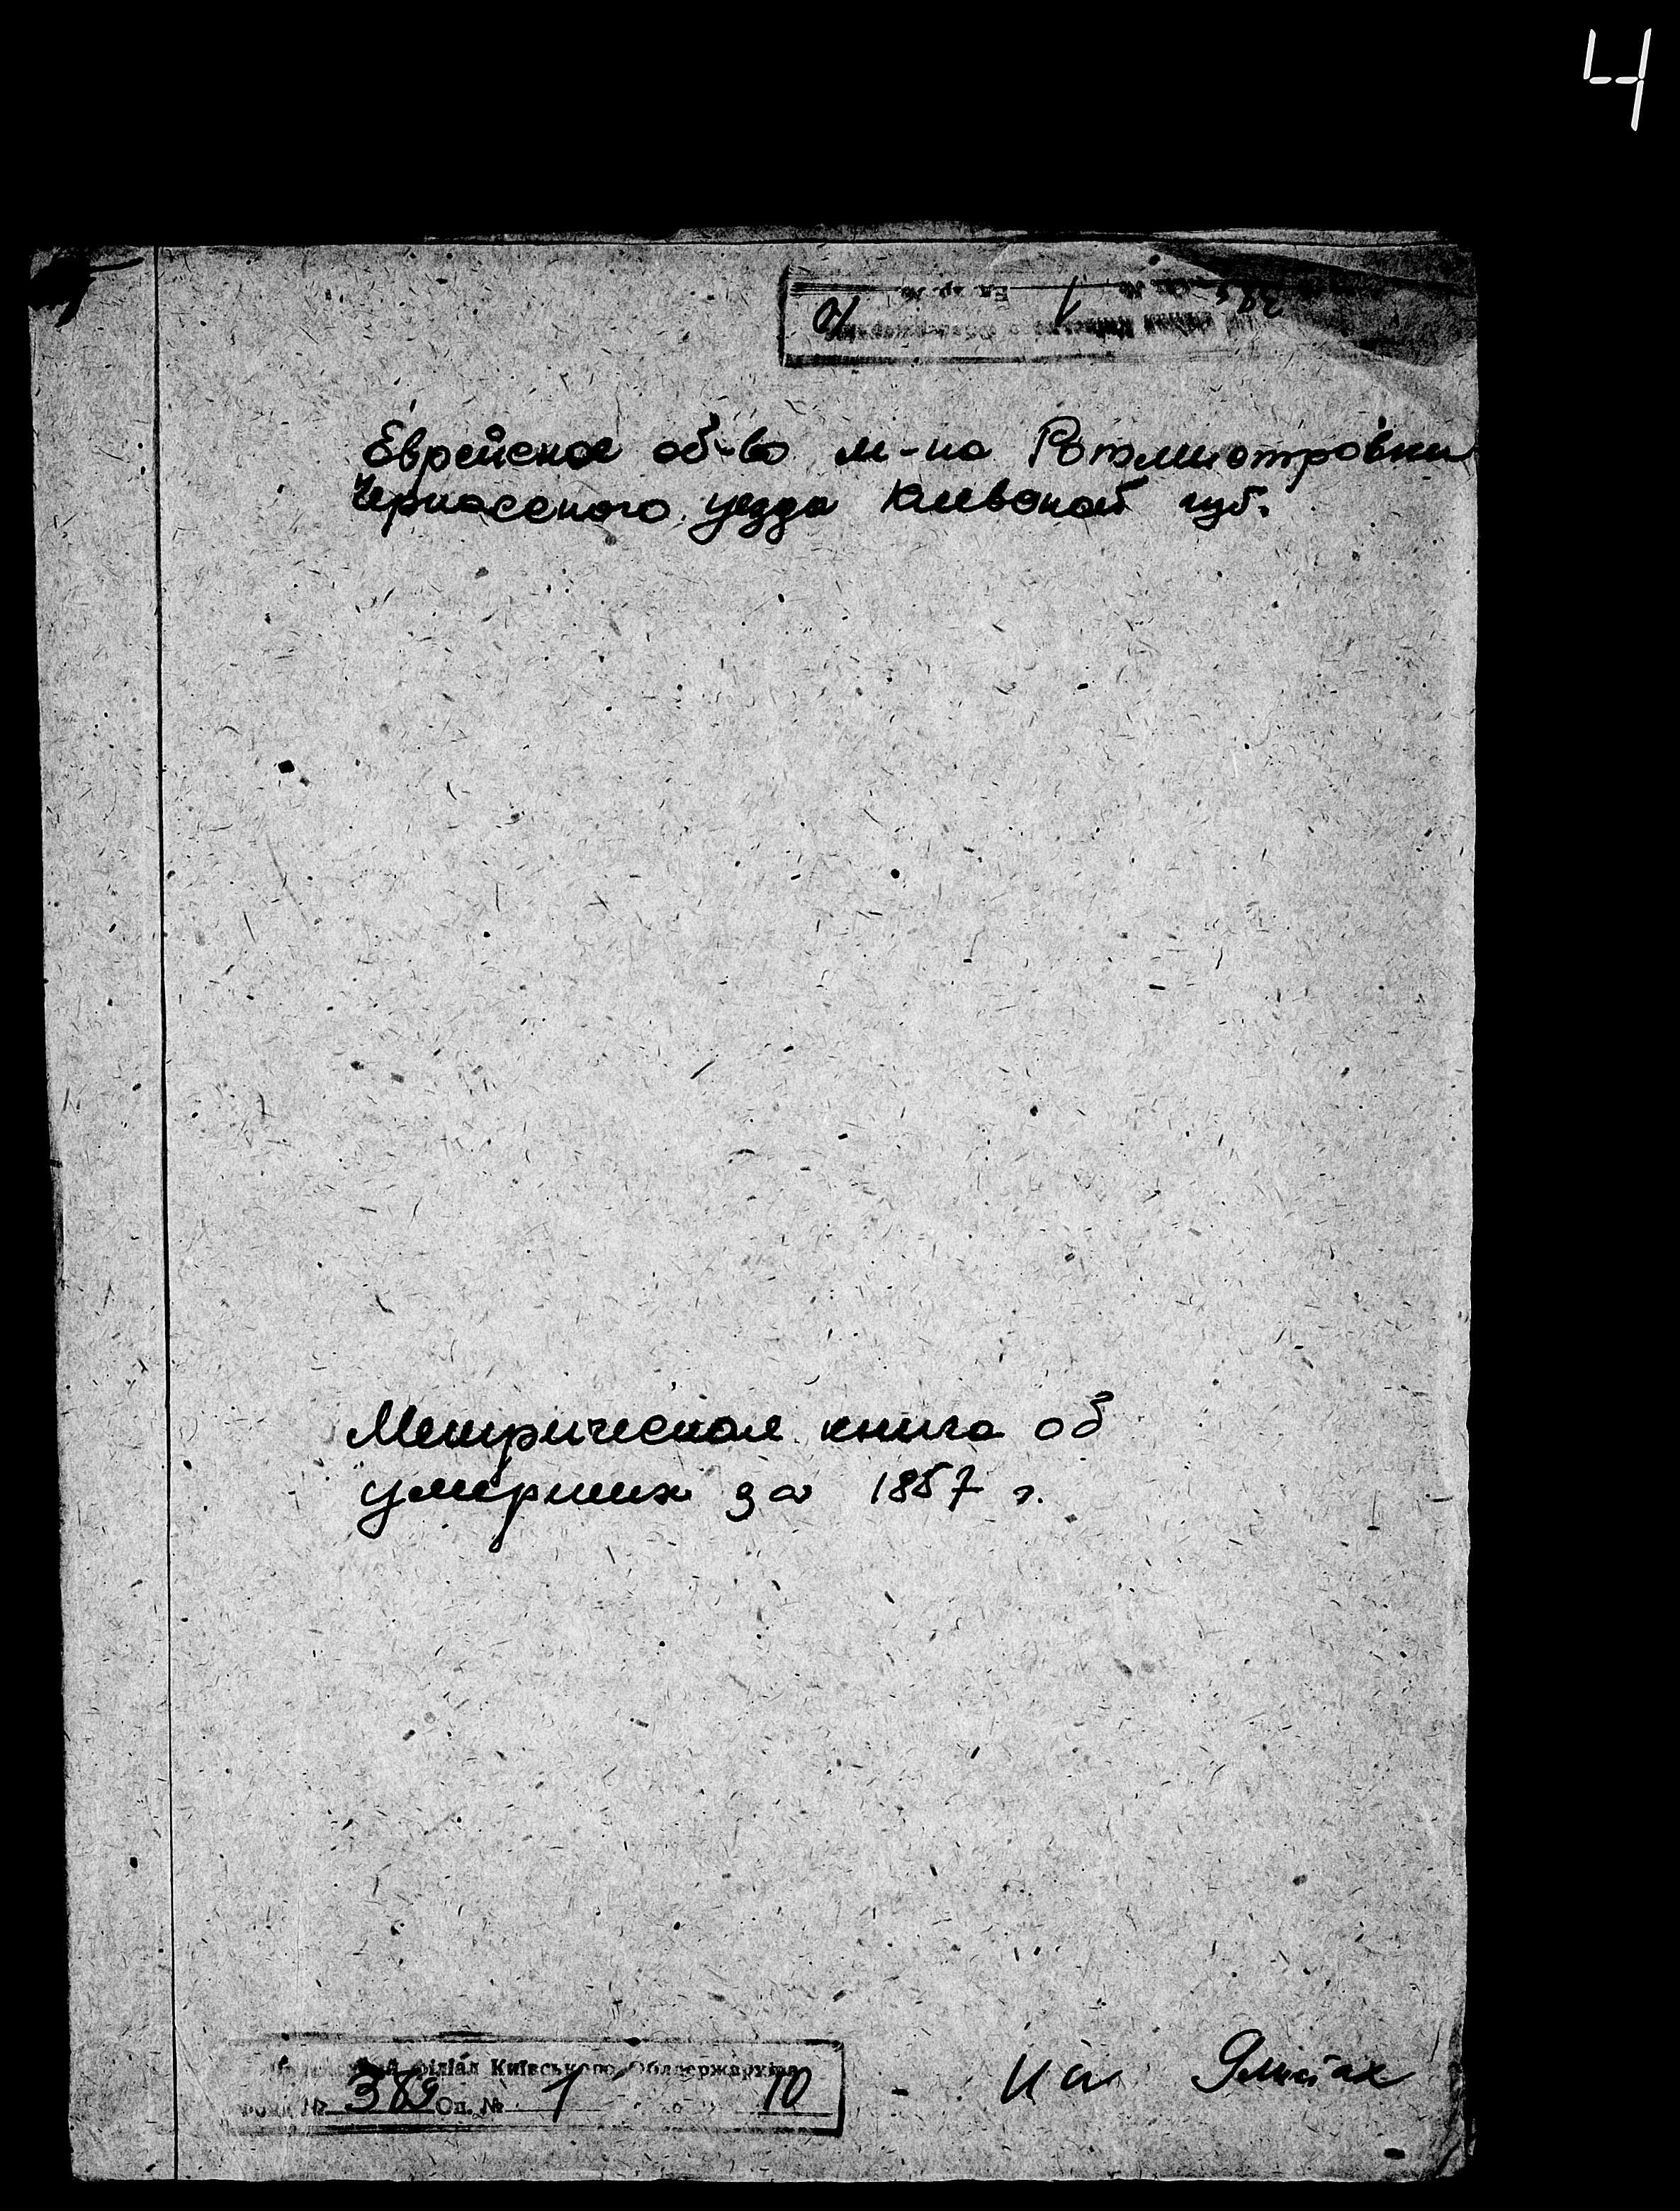 4
Еврейское об-во м-ка Ротмистровки
Черкасского уезда Киевской губ.
Метрическая книга об
умерших за 1857 г.
філіал Київського Облдержархіва
№ 389 Оп. № 1 10
На листах